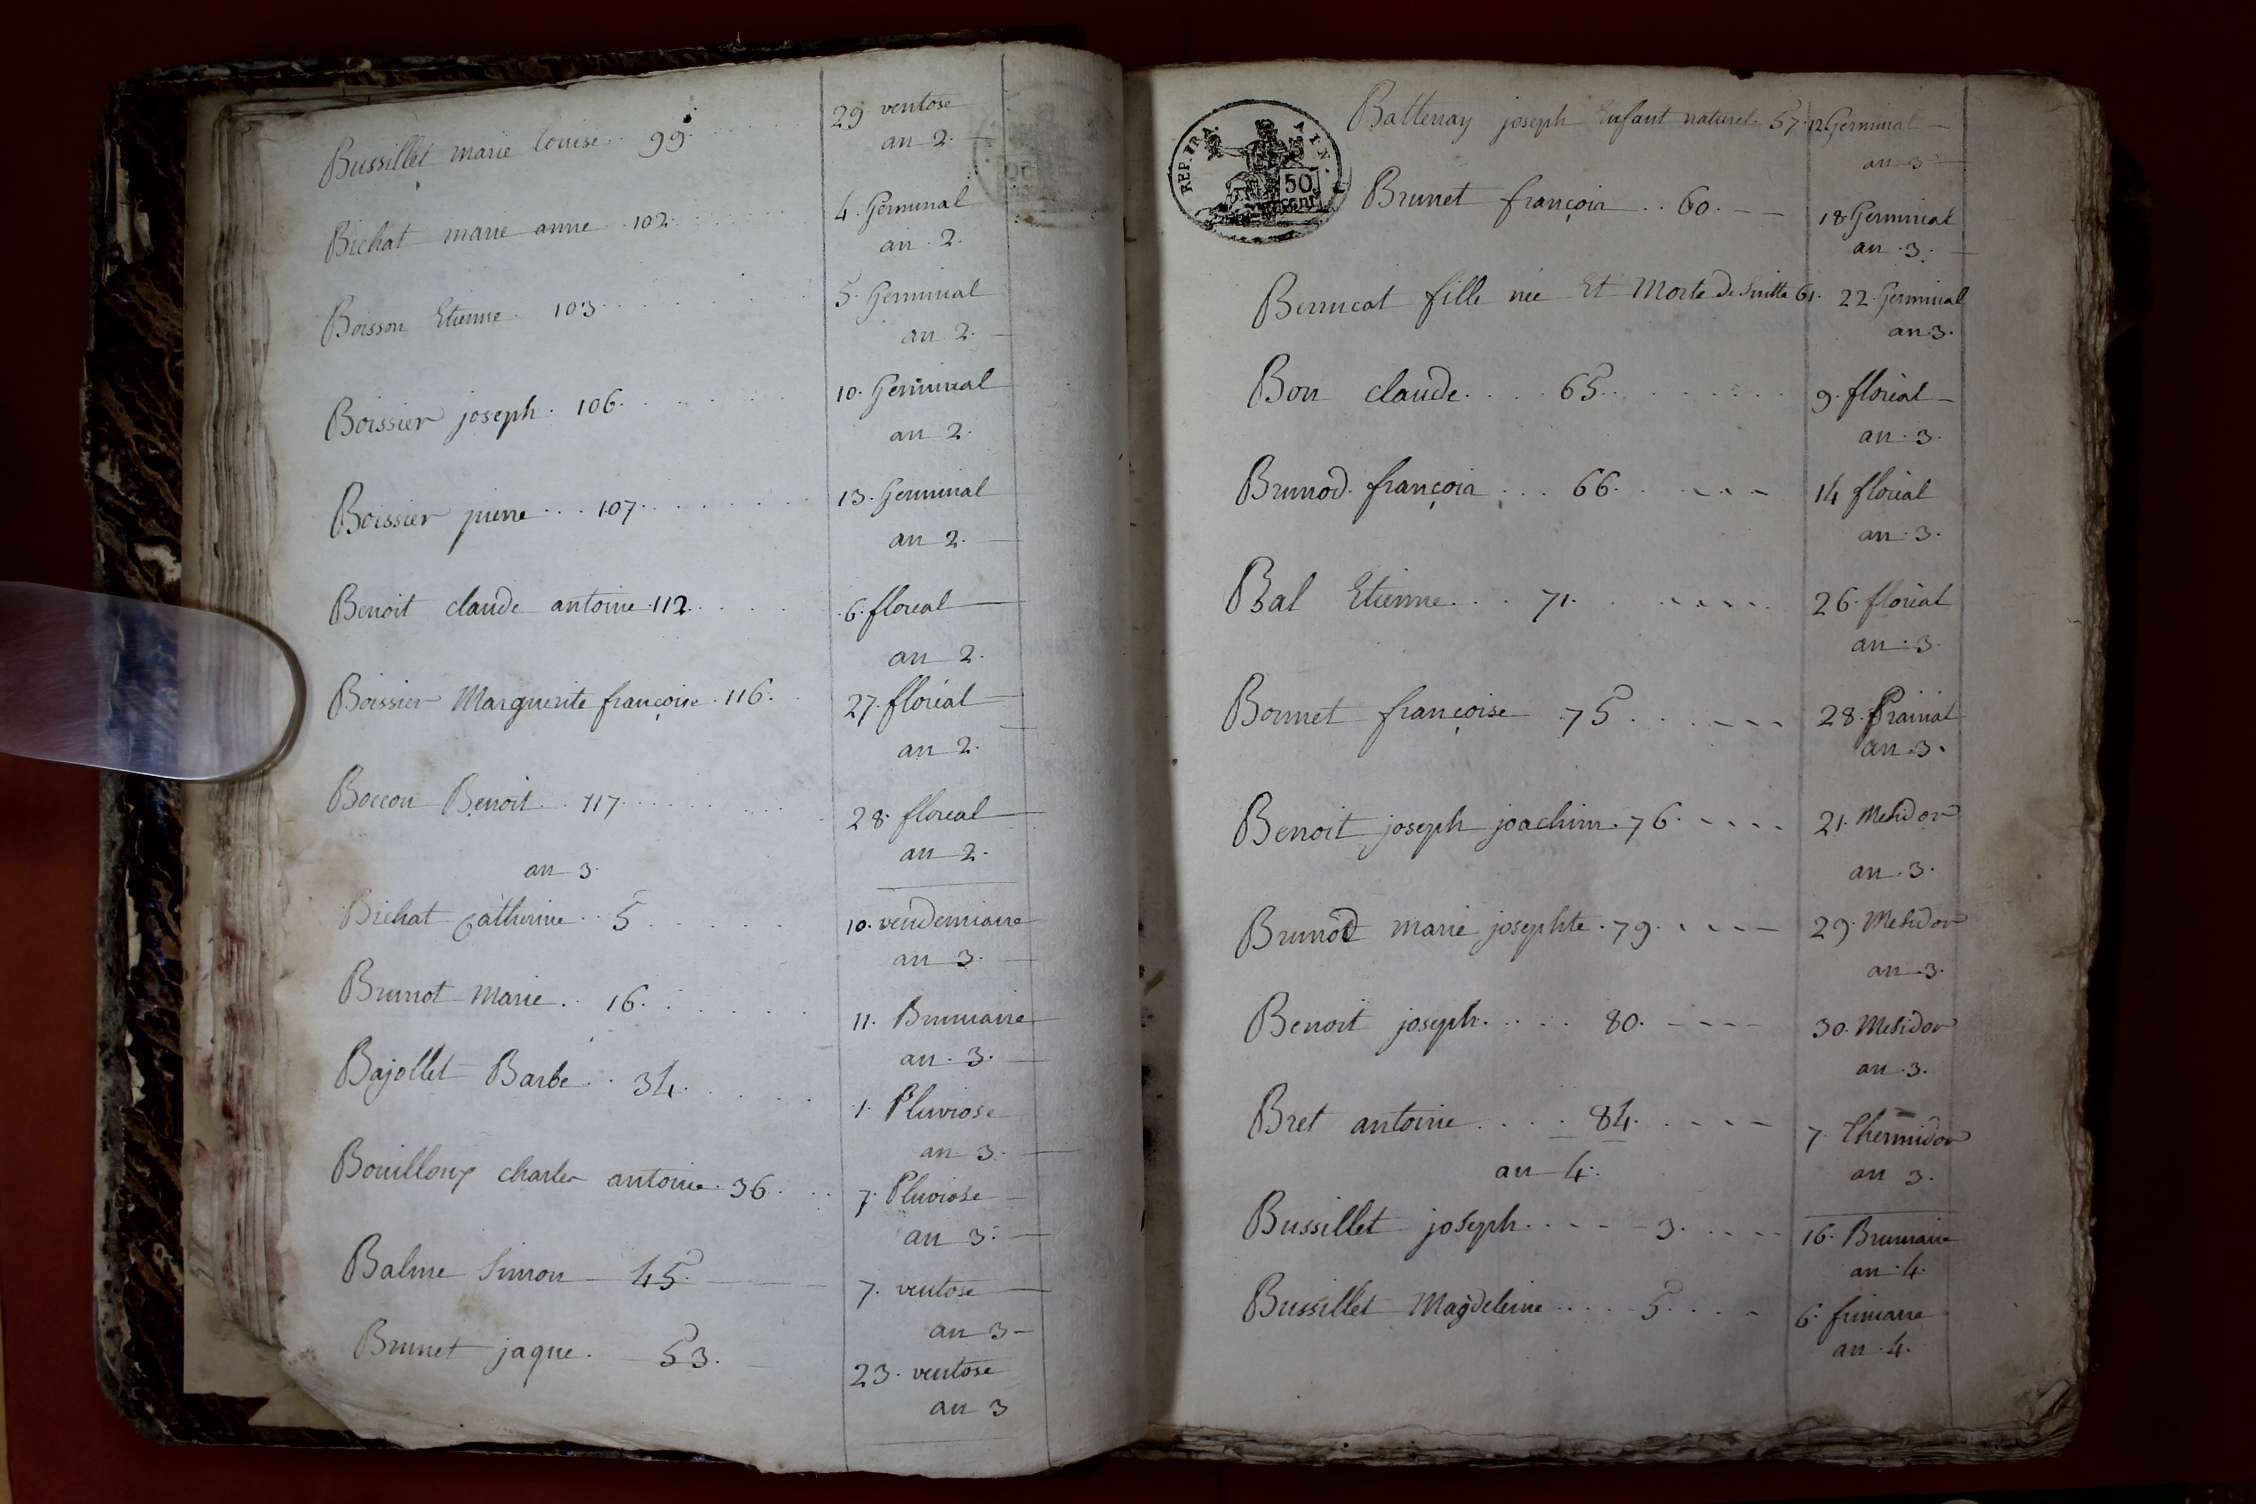 Bussillet marie louise .. 99. 29 ventose
an 2.
Bichat marie anne . 102. 4. Germinal
an 2.
Boisson Etienne . 103. 5. Germinal
an 2.
Boissier joseph . 106. 10. Germinal
an 2.
Boissier pierre ... 107. 13. Germinal
an 2.
Benoit claude antoine . 112. 6. floreal
an 2.
Boissier Marguerite françoise . 116. 27. floréal
an 2.
Boccon Benoit .. 117. 28. floreal
an 2.
an 3.
Bichat Catherine .. 5. 10. vendemiaire
an 3.
Brunot Marie .. 16. 11. Brumaire
an 3.
Bajollet Barbe .. 34. 1. Pluviose
an 3.
Bouilloux charles antoine . 36. 7. Pluviose
an 3.
Balme Simon 45. 7. ventose
an 3
Brunet jaque. 53. 23. ventose
an 3
REP. FRA. AIN.
50
Battenay joseph Enfant naturel. 57. 12 Germinal
an 3
Brunet françois .. 60. 18 Germinal
an 3.
Bernicat fille née Et Morte de Suitte 61. 22. Germinal
an 3.
Bon claude .... 65. 9. floréal
an 3.
Brunod. françois ... 66. 14 floréal
an 3.
Bal Etienne ... 71. 26. floréal
an 3.
Bonnet françoise . 75. 28. Prairial
an 3.
Benoit joseph joachim . 76. 21. Mesidor
an 3.
Brunod marie josephte . 79. 29. Mesidor
an 3.
Benoit joseph .... 80. 30. Mesidor
an 3.
Bret antoine .... 84. 7. Thermidor
an 3.
an 4.
Bussillet joseph .... 3. 16. Brumaire
an 4.
Bussillet Magdeleine .... 5. 6. frimaire
an 4.